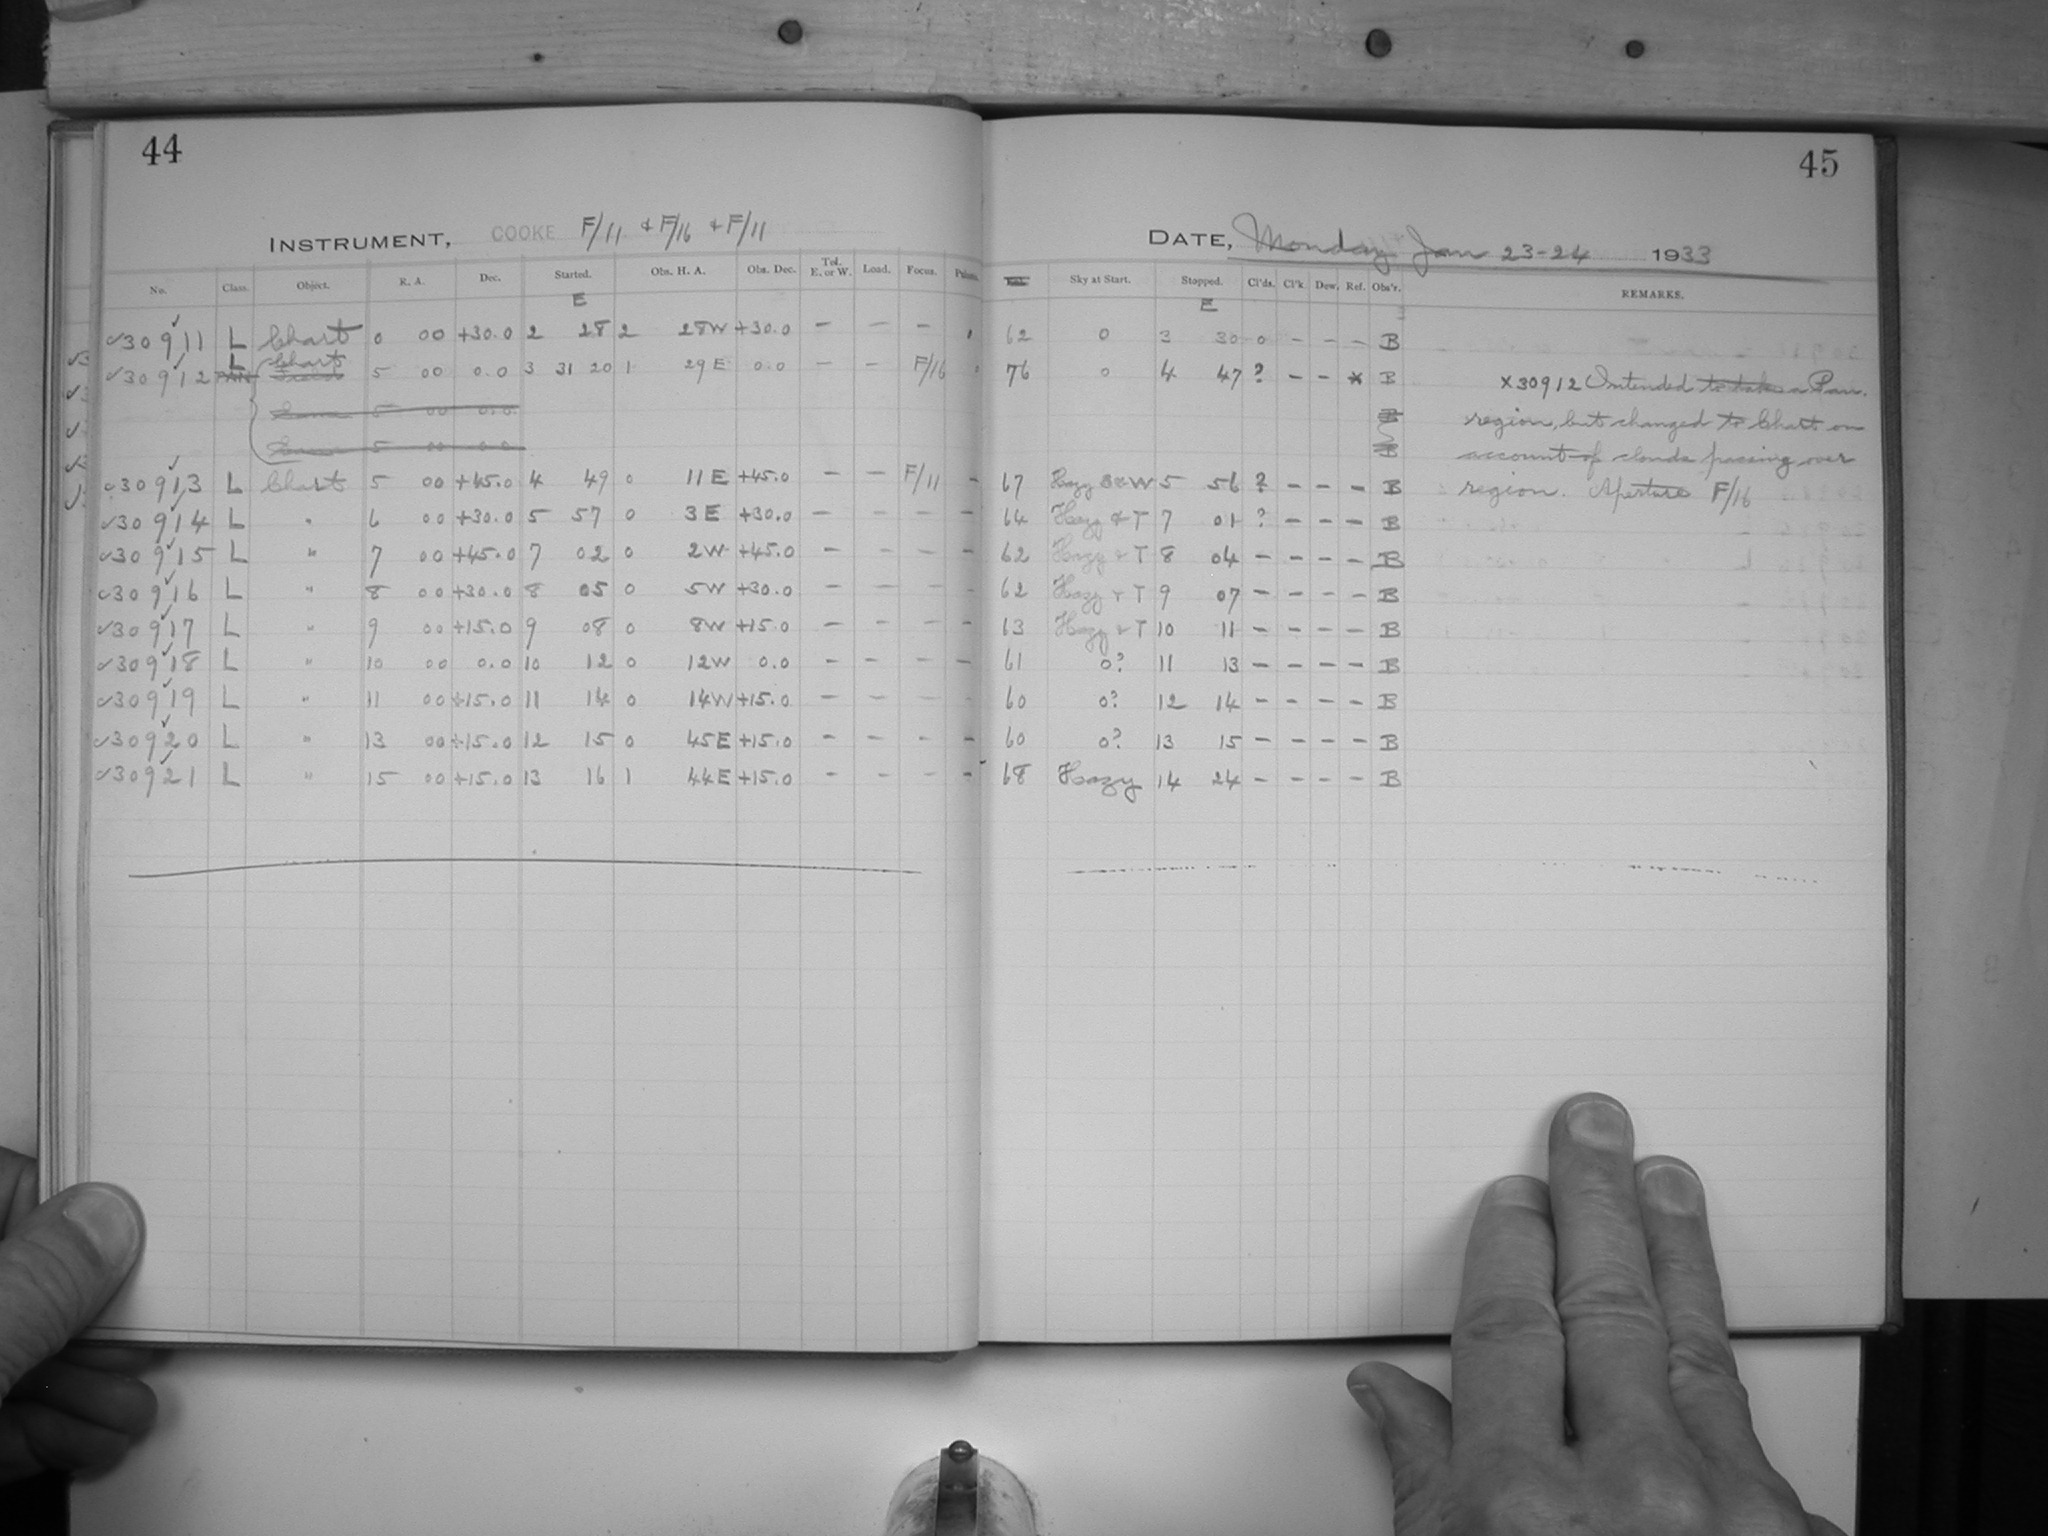 44
INSTRUMENT, COOKE F/11 & F/16 & F/11
No. Class. Object. R. A. Dec. Started. Obs. H. A. Obs. Dec. Tel. E. or W. Load. Focus.
E
30911 L Chart 0 00 +30.0 2 28 2 28W +30.0 — — —
L Chart
30912 PAN Field 5 00 0.0 3 31 20 1 29 E 0.0 — — F/16
5 00 0.0
5 00 0.0
30913 L Chart 5 00 +45.0 4 49 0 11 E +45.0 — — F/11 —
30914 L " 6 00 +30.0 5 57 0 3 E +30.0 — — — —
30915 L " 7 00 +45.0 7 02 0 2W +45.0 — — — —
30916 L " 8 00 +30.0 8 05 0 5W +30.0 — — — —
30917 L " 9 00 +15.0 9 08 0 8W +15.0 — — — —
30918 L " 10 00 0.0 10 12 0 12W 0.0 — — — —
30919 L " 11 00 +15.0 11 14 0 14W +15.0 — — — —
30920 L " 13 00 +15.0 12 15 0 45E +15.0 — — — —
30921 L " 15 00 +15.0 13 16 1 44E +15.0 — — — —
45
DATE, Monday Jan 23-24 1933
Sky at Start. Stopped. Cl'ds. Cl'k. Dew. Ref. Obs'r. REMARKS.
E
62 0 3 30 0 — — — B
76 0 4 47 ? — — * B X30912 Intended to take a Pan.
region, but changed to Chart on
account of clouds passing over
67 Hazy S & W 5 56 ? — — — B region. Aperture F/16
64 Hazy & T 7 01 ? — — — B
62 Hazy & T 8 04 — — — — B
62 Hazy & T 9 07 — — — — B
63 Hazy & T 10 11 — — — — B
61 0? 11 13 — — — — B
60 0? 12 14 — — — — B
60 0? 13 15 — — — — B
68 Hazy 14 24 — — — — B